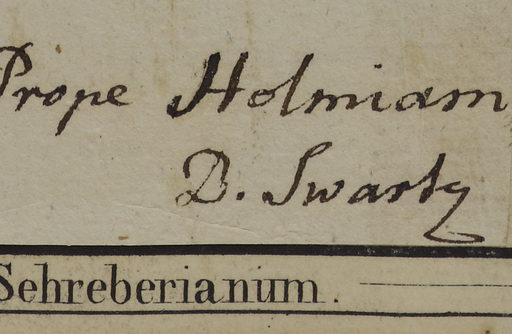 Prope Holmiam
D. Swartz
Schreberianum.